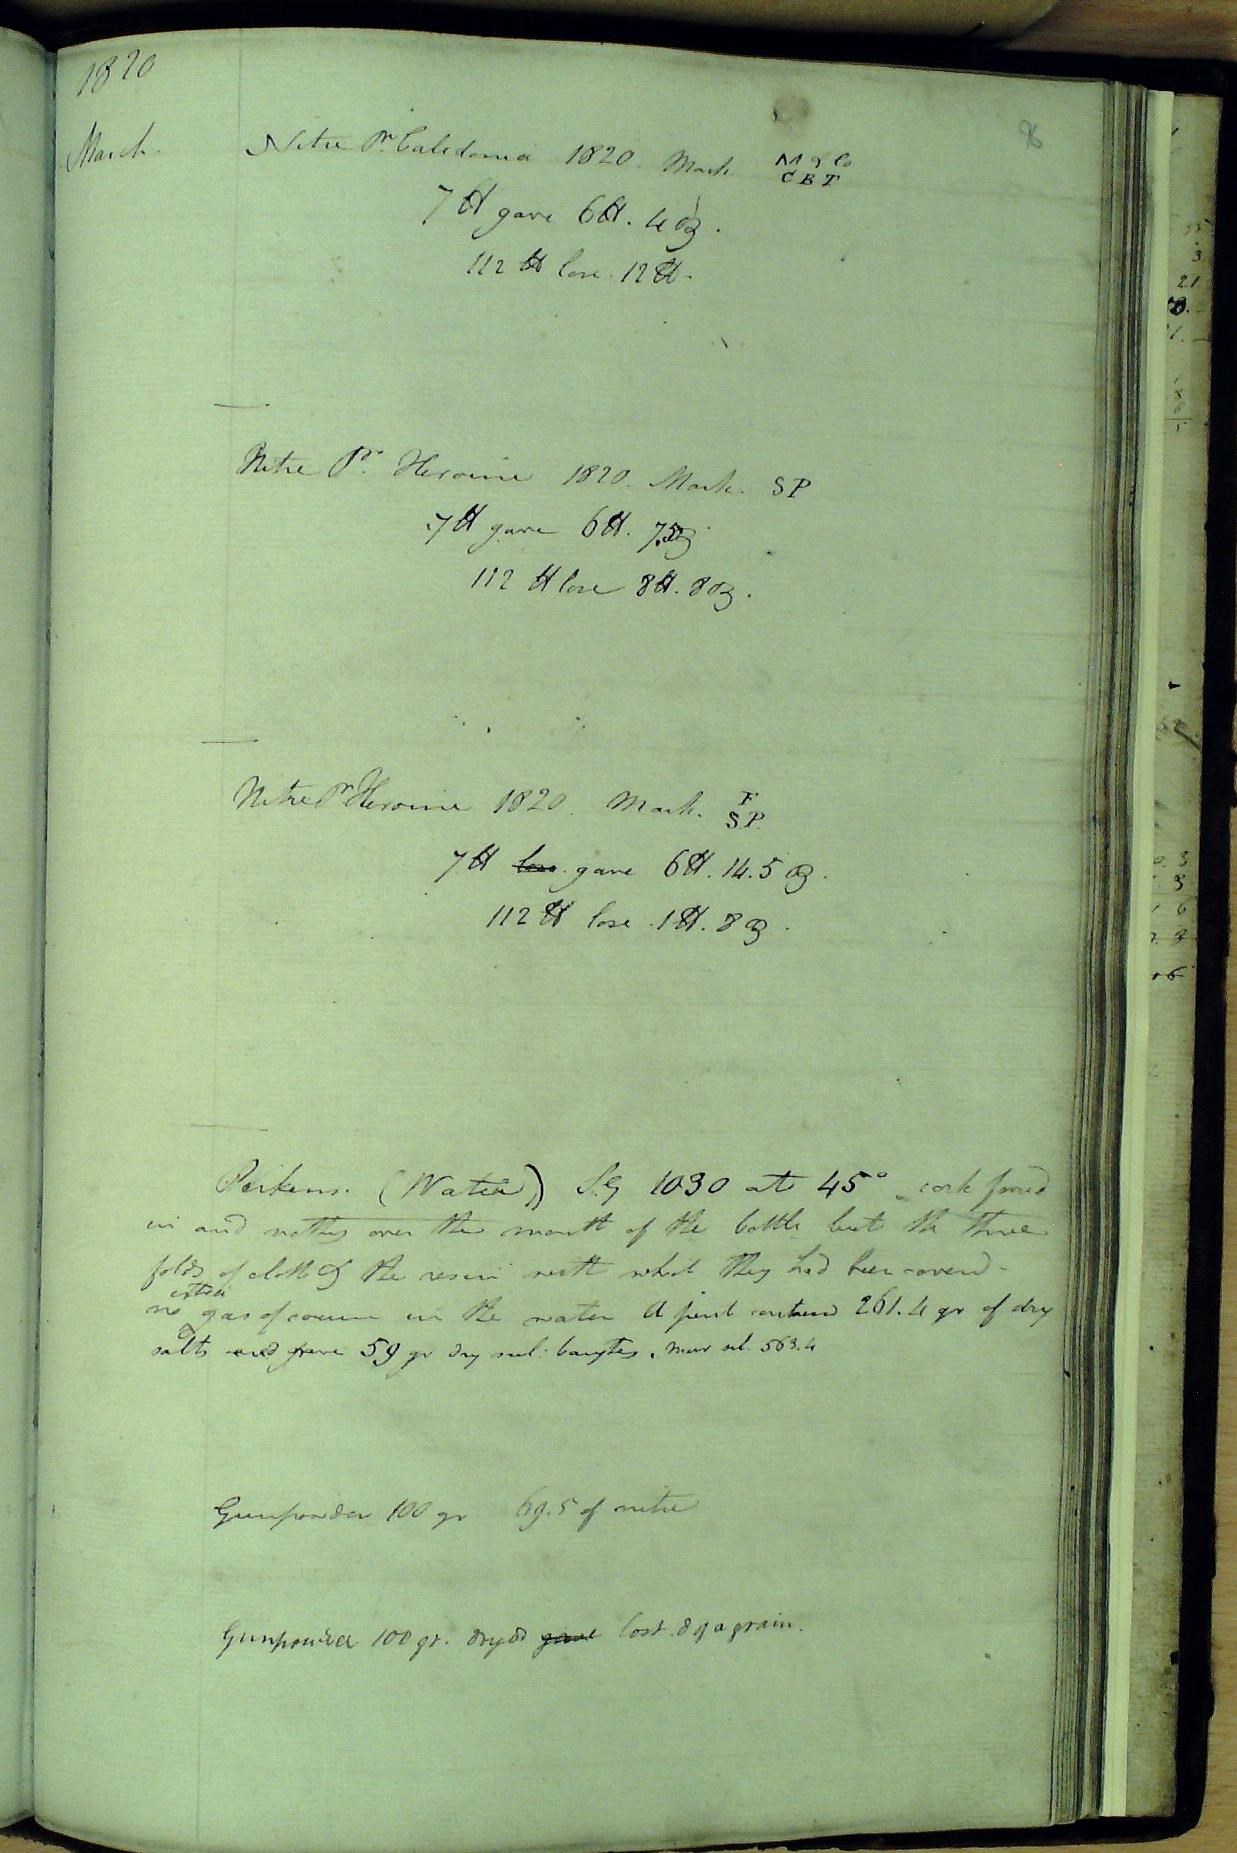 1820
March.
Nitre Pr. Caledonia 1820. Mark M & Co
CBT
7 lb gave 6 lb. 4 oz.
112 lb lose. 12 lb.
Nitre Pr. Heroine 1820. Mark. SP
7 lb gave 6 lb. 7.5 oz
112 lb lose 8 lb. 8 oz.
Nitre Pr Heroine 1820. Mark. F
SP.
7 lb lose. gave 6 lb. 14.5 oz.
112 lb lose 1 lb. 8 oz.
Perkins. (Water) S.G 1030 at 45° cork forced
in and nothing over the mouth of the bottle but the three
folds of cloth & the resin with which they had been covered -
no extra gas of course in the water A pint contained 261.4 gr of dry
salts and gave 59 gr dry sul. barytes. mur sil. 563.4
Gunpowder 100 gr 69.5 of nitre
Gunpowder 100 gr. dryed gave lost .8 of a grain.